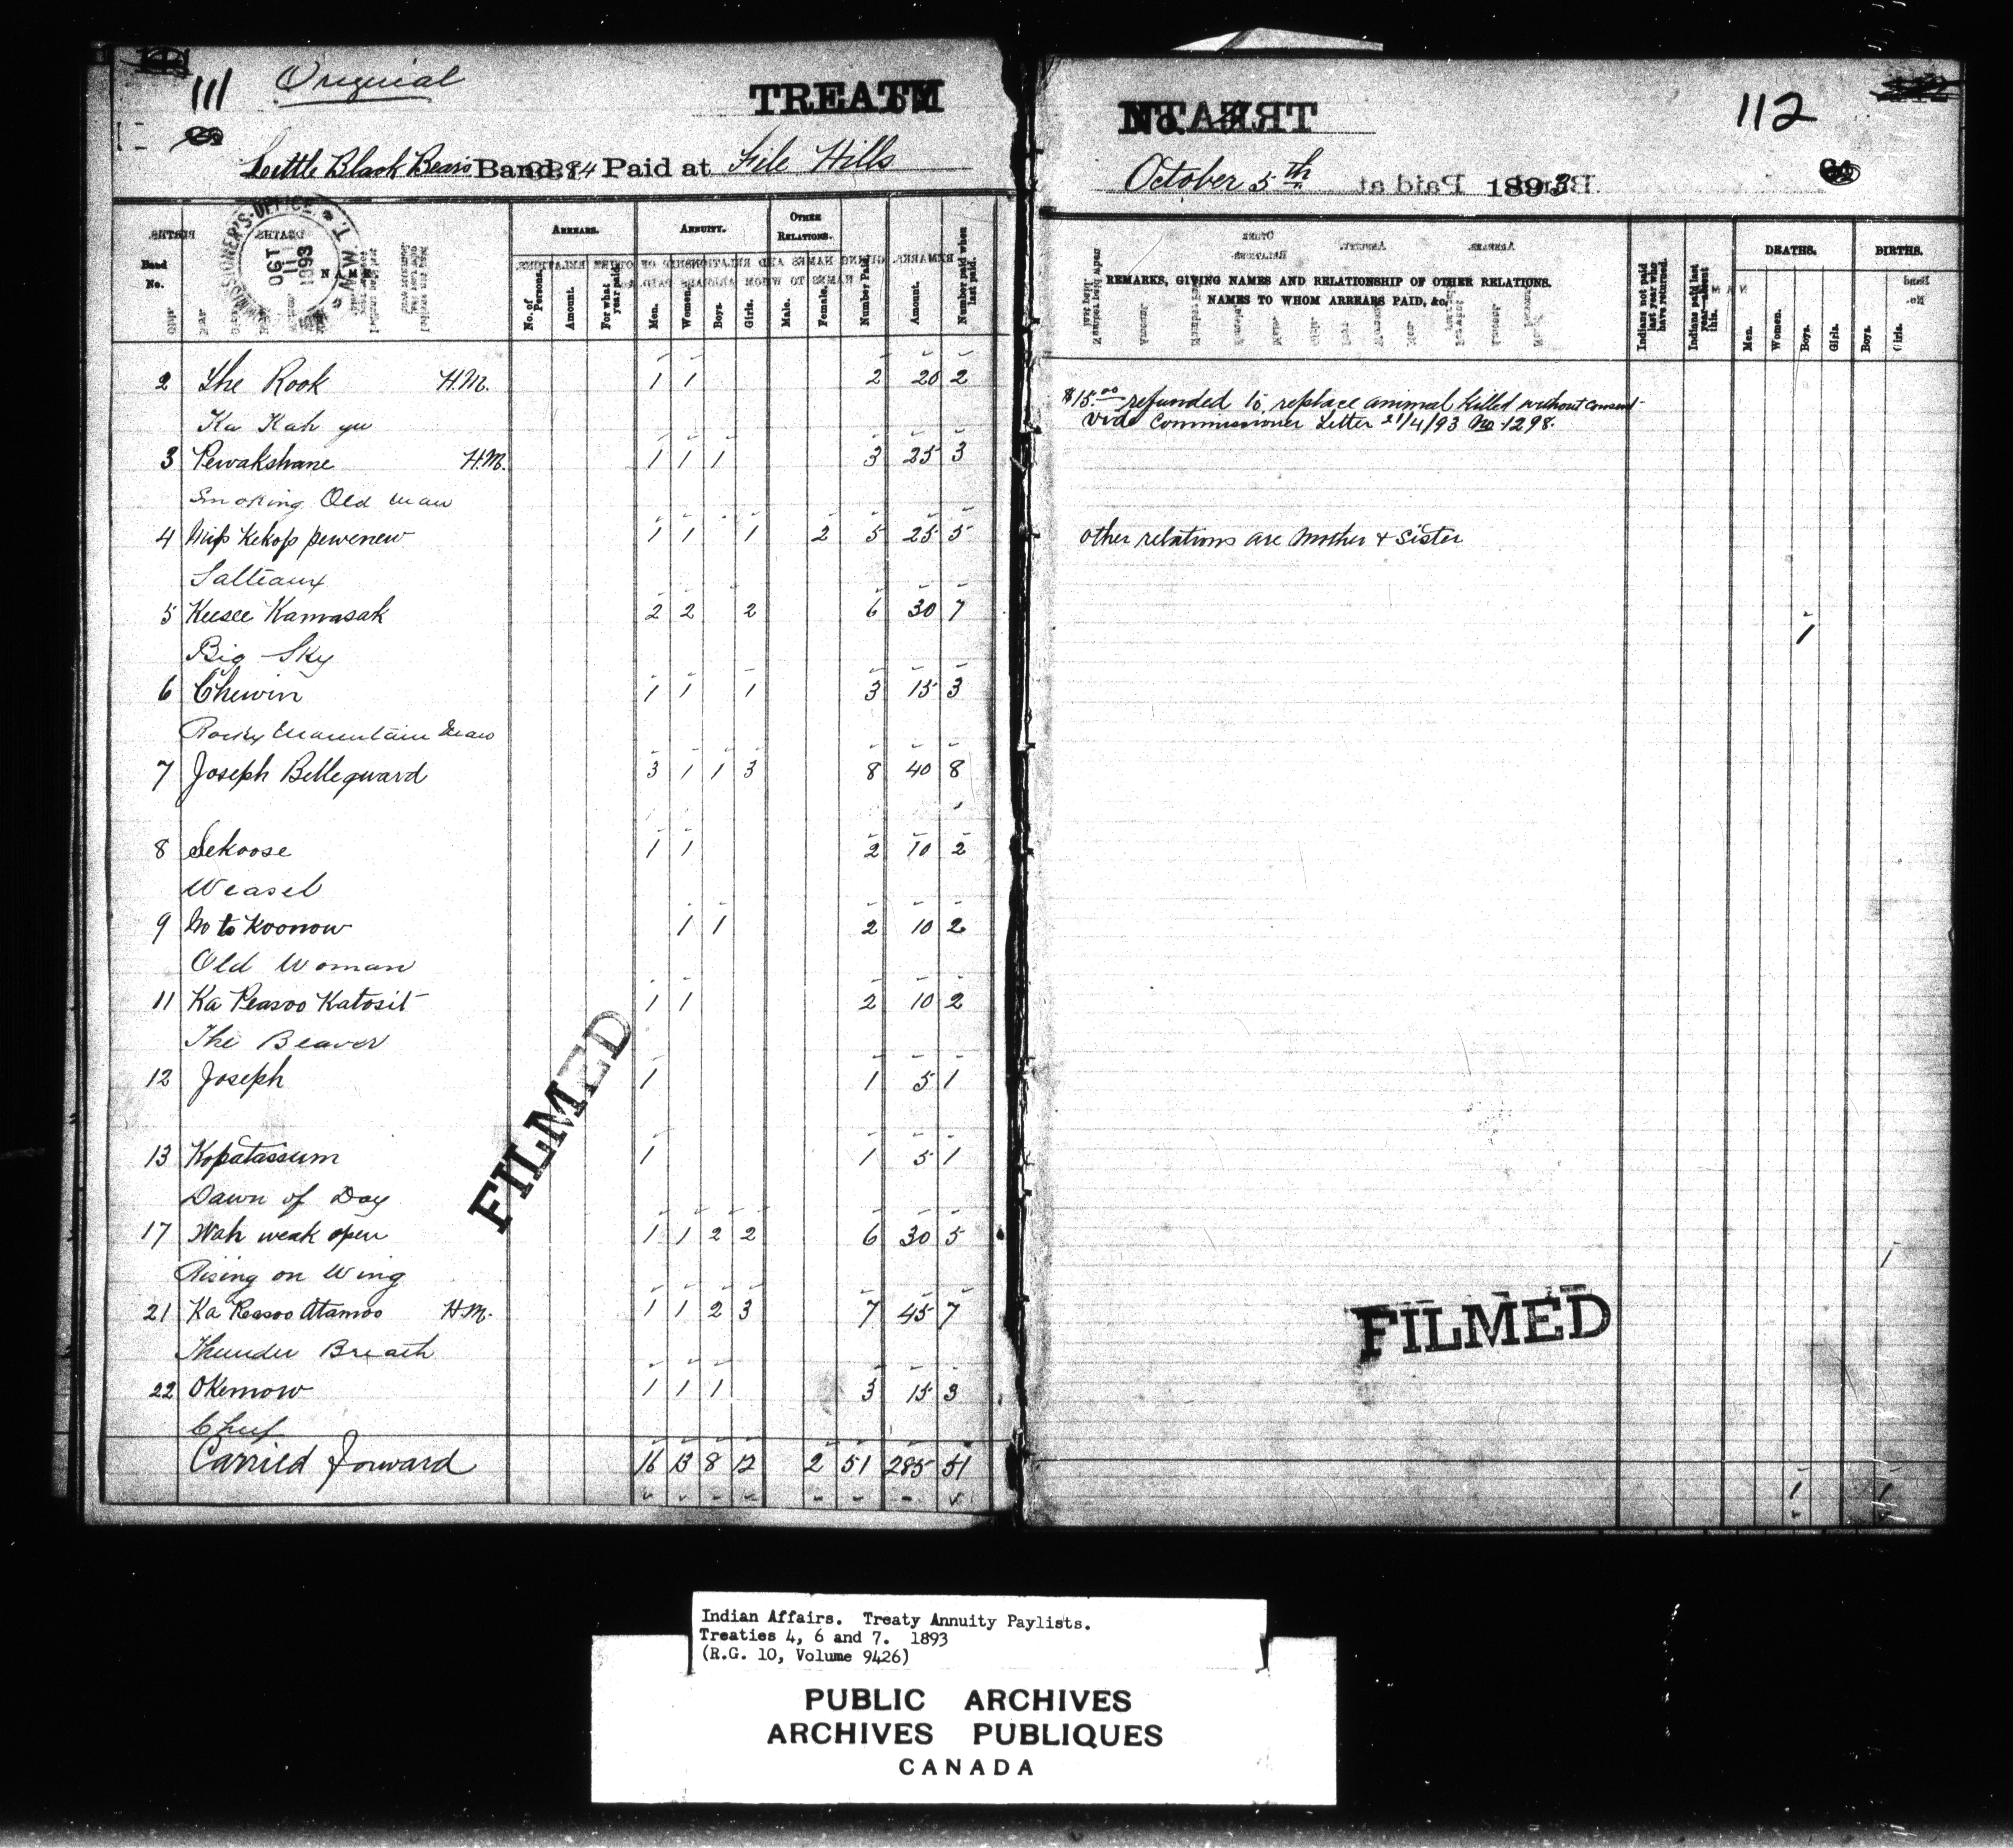 111 Original
TREATY
Little Black Bears Band, Paid at File Hills
COMMISSIONER'S OFFICE N.W.T.
OCT 11 1893
Band No. NAME ARREARS. ANNUITY. OTHER RELATIONS.
No. of Persons. Amount. For what year paid. Men. Women. Boys. Girls. Male. Female. Number Paid. Amount. Number paid when last paid.
2 The Rook H.M. 1 1 2 20 2
Ka Kah yu
3 Pewakshane H.M. 1 1 1 3 25 3
Smoking Old Man
4 Kekop pewenew 1 1 1 2 5 25 5
Salteaux
5 Keesee Kamasak 2 2 2 6 30 7
Big Sky
6 Chewin 1 1 1 3 15 3
Rocky Mountain
7 Joseph Bellegward 3 1 1 3 8 40 8
8 Sekoose 1 1 2 10 2
Weasel
9 No to Koonow 1 1 2 10 2
Old Woman
11 Ka Peasoo Katosit 1 1 2 10 2
The Beaver
12 Joseph 1 1 5 1
13 Kopatassum 1 1 5 1
Dawn of Day
17 Wah weak open 1 1 2 2 6 30 5
Rising on Wing
21 Ka Peasoo Atamoo H.M. 1 1 2 3 7 45 7
Thunder Breath
22 Okemow 1 1 1 3 15 3
Chief
Carried Forward 16 13 8 12 2 51 285 51
FILMED
112
No. 4
October 5th 1893
REMARKS, GIVING NAMES AND RELATIONSHIP OF OTHER RELATIONS.
NAMES TO WHOM ARREARS PAID, &c.
Indians not paid last year who have returned.
Indians paid last year—absent this.
DEATHS. BIRTHS.
Men. Women. Boys. Girls. Boys. Girls.
$15.00 refunded to replace animal killed without consent
vide Commissioner Letter 21/4/93 No 1298.
other relations are Mother & Sister
1
1
FILMED
1 1
Indian Affairs. Treaty Annuity Paylists.
Treaties 4, 6 and 7. 1893
(R.G. 10, Volume 9426)
PUBLIC ARCHIVES
ARCHIVES PUBLIQUES
CANADA